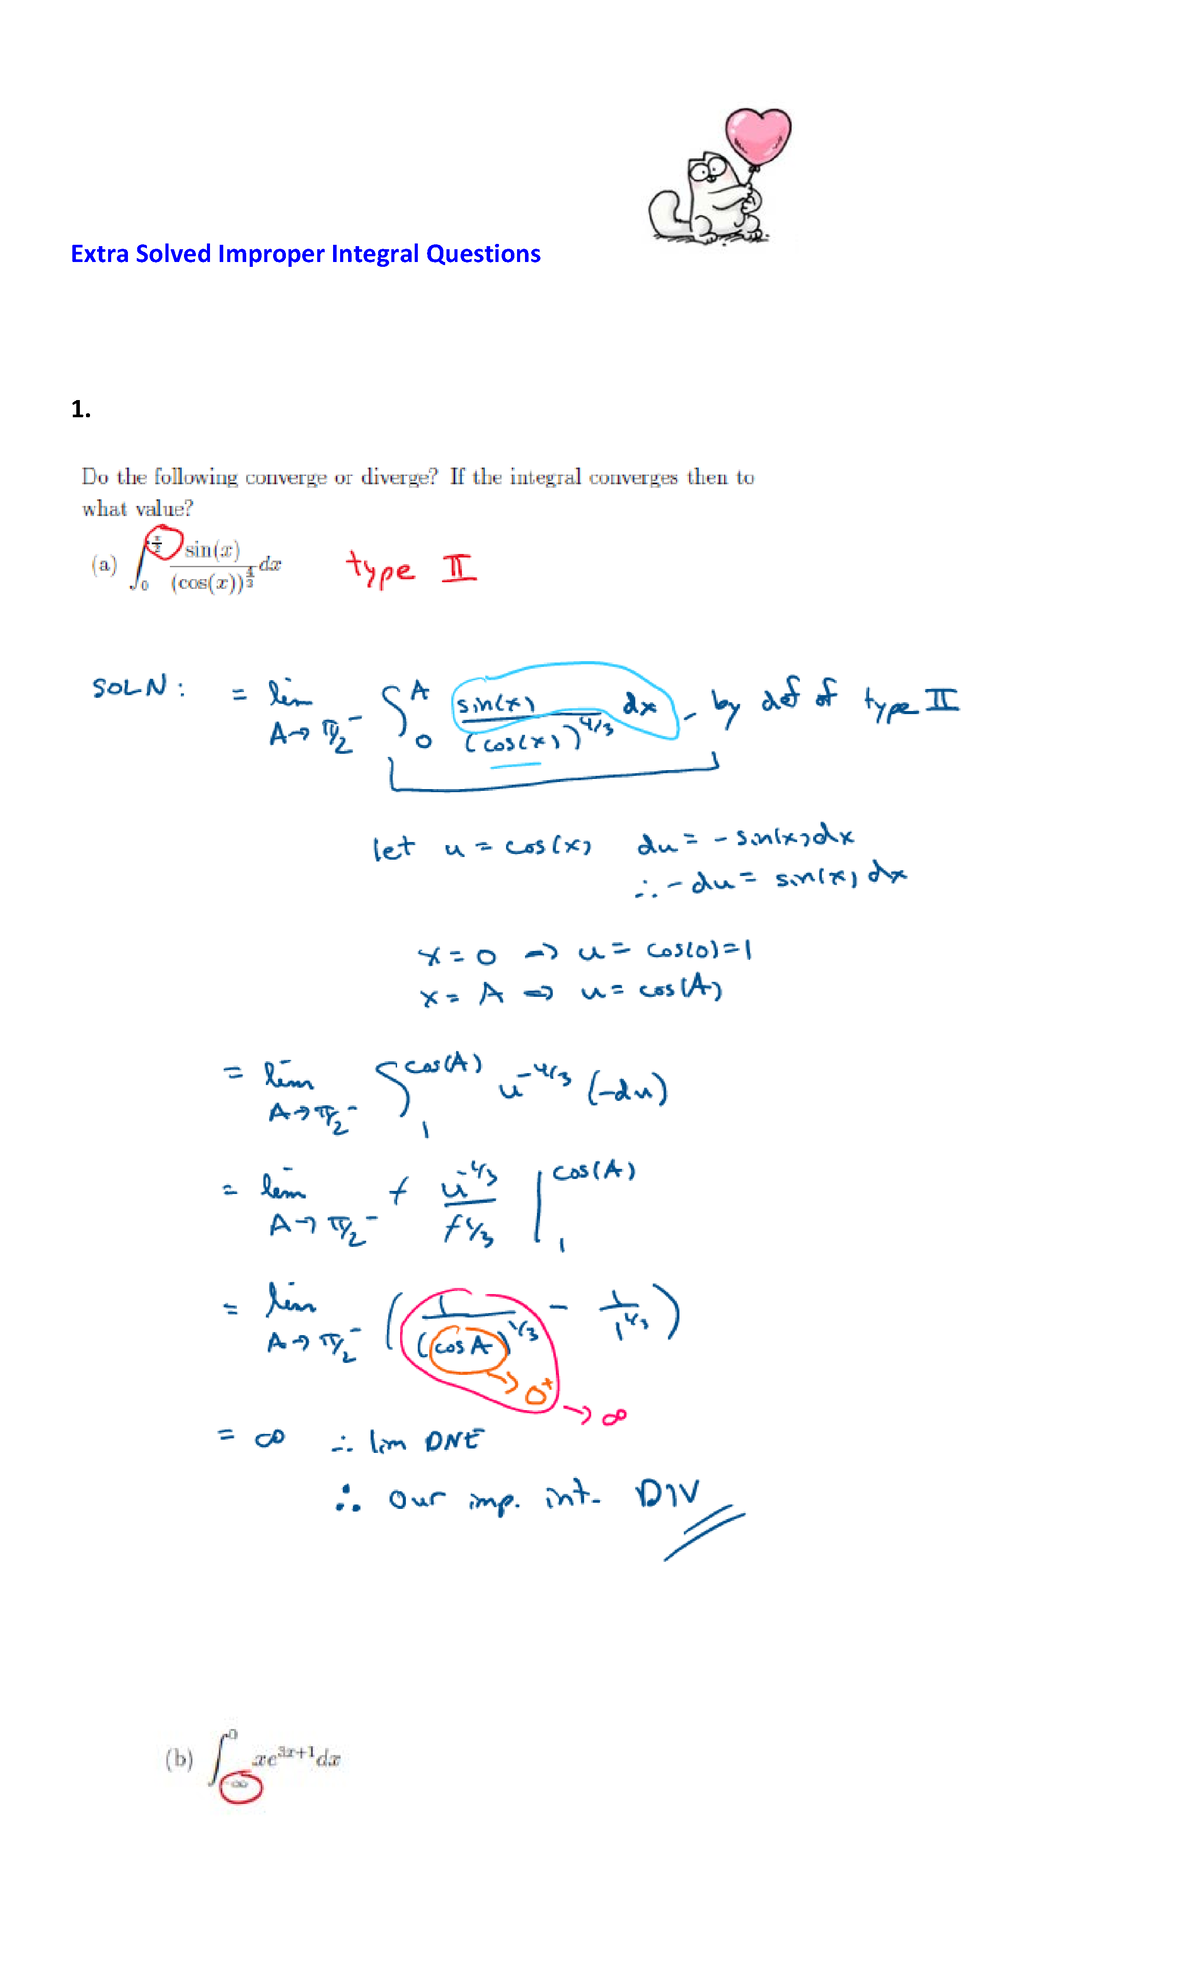 Extra Solved Improper Integral Questions
1.
Do the following converge or diverge? If the integral converges then to
what value?
(a) ∫_0^{π/2} sin(x)/(cos(x))^{4/3} dx type II
SOLN: = lim_{A→π/2⁻} ∫_0^A sin(x)/(cos(x))^{4/3} dx, by def of type II
let u = cos(x), du = -sin(x)dx
∴ -du = sin(x) dx
x = 0 ⇒ u = cos(0) = 1
x = A ⇒ u = cos(A)
= lim_{A→π/2⁻} ∫_1^{cos(A)} u^{-4/3} (-du)
= lim_{A→π/2⁻} + u^{-1/3} / +1/3 |_1^{cos(A)}
= lim_{A→π/2⁻} ( 1/(cos A)^{1/3} - 1/1^{1/3} )
→ 0⁺ → ∞
= ∞ ∴ lim DNE
∴ our imp. int. DIV
(b) ∫_{-∞}^0 xe^{3x+1} dx